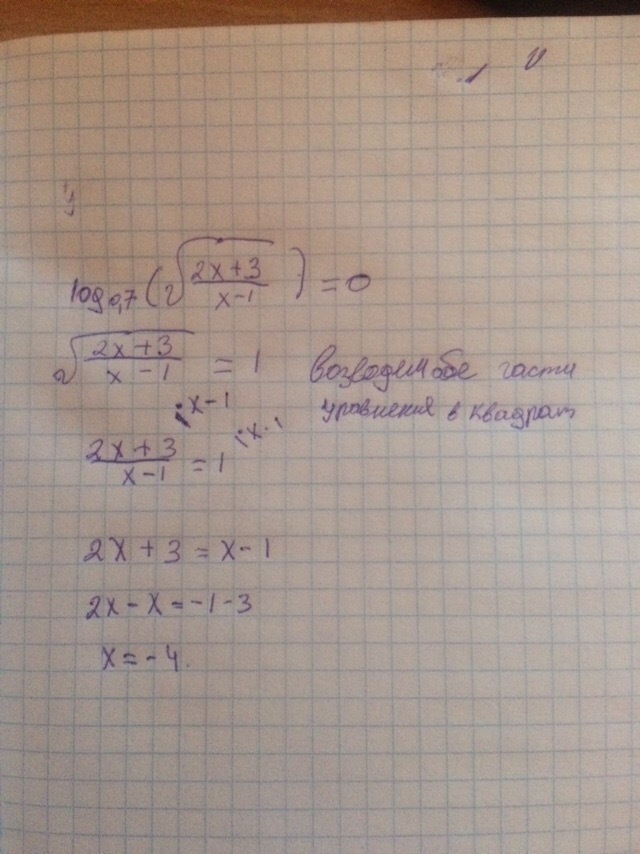 log0,7 (√(2x+3)/(x-1)) = 0
√(2x+3)/(x-1) = 1 возводим обе части
уравнения в квадрат
(2x+3)/(x-1) = 1 |·x-1 |·x-1
2x+3 = x-1
2x-x = -1-3
x = -4.